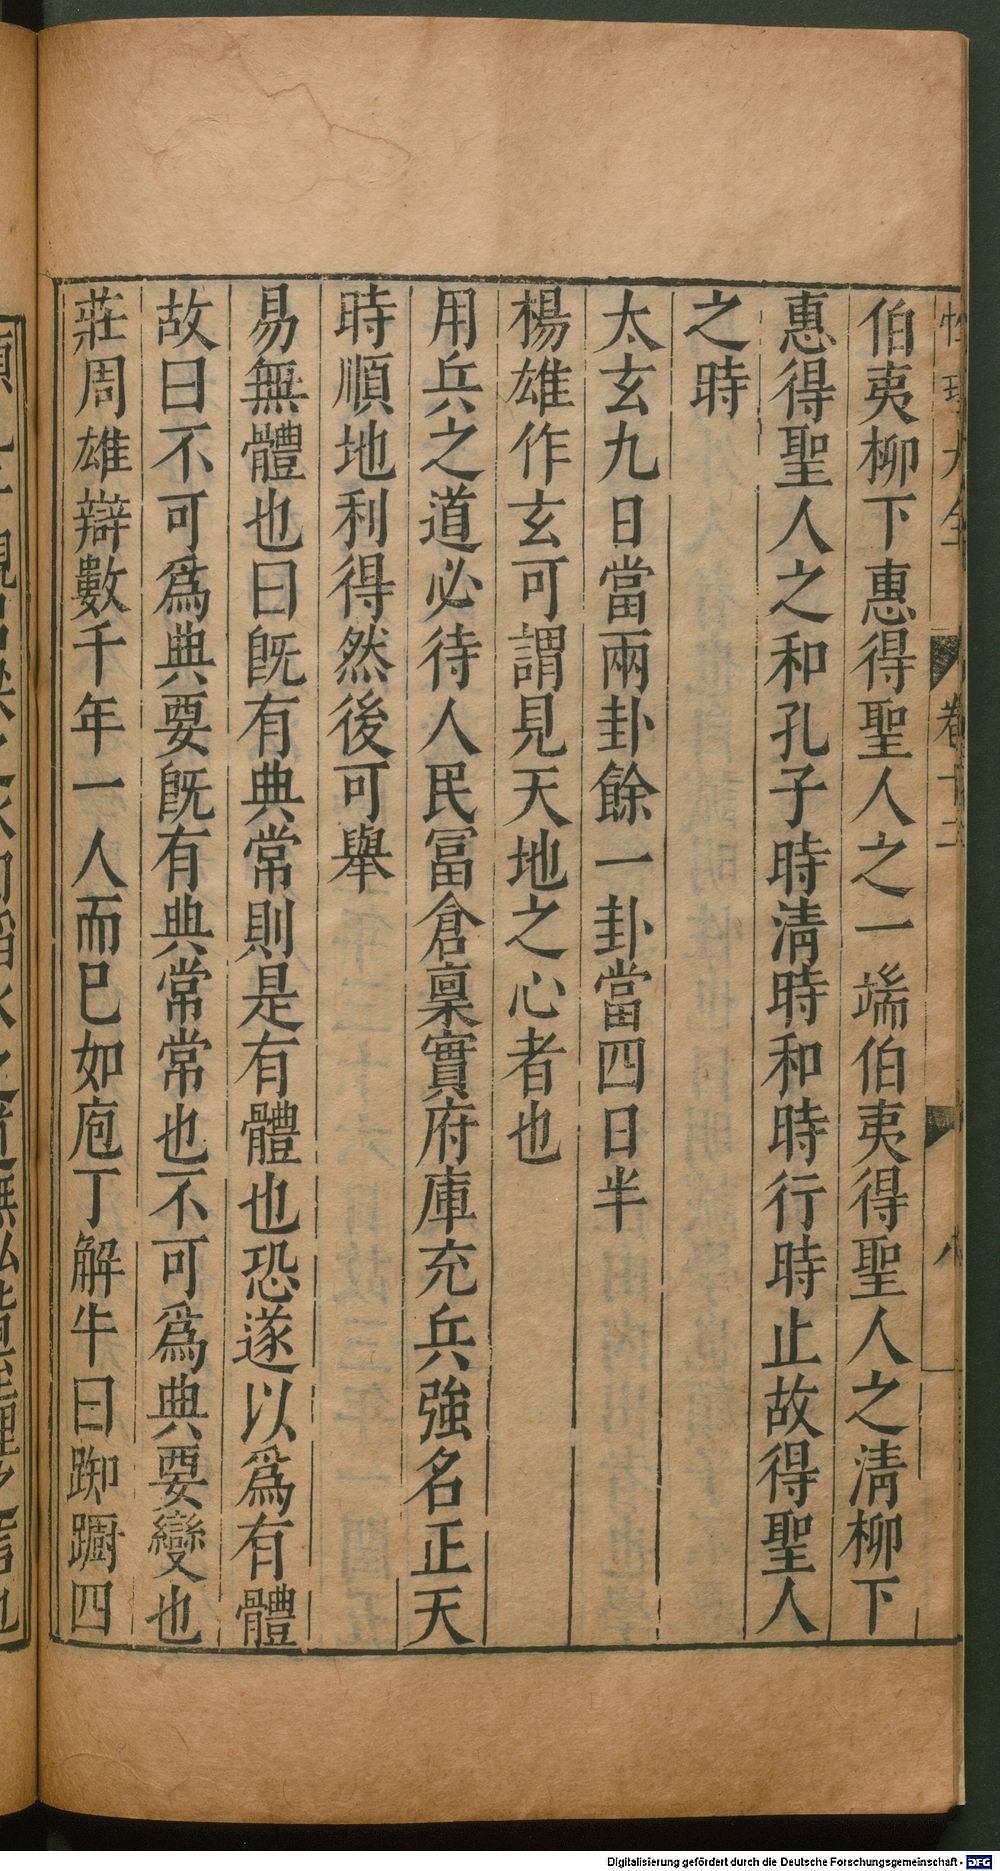 伯夷柳下惠得聖人之一端伯夷得聖人之清柳下
惠得聖人之和孔子時清時和時行時止故得聖人
之時
太玄九日當兩卦餘一卦當四日半
楊雄作玄可謂見天地之心者也
用兵之道必待人民冨倉稟實府庫充兵強名正天
時順地利得然後可舉
易無體也曰旣有典常則是有體也恐遂以爲有體
故曰不可爲典要旣有典常常也不可爲典要變也
莊周雄辯數千年一人而已如庖丁解牛曰踟躕四
Digitalisierung gefördert durch die Deutsche Forschungsgemeinschaft - DFG